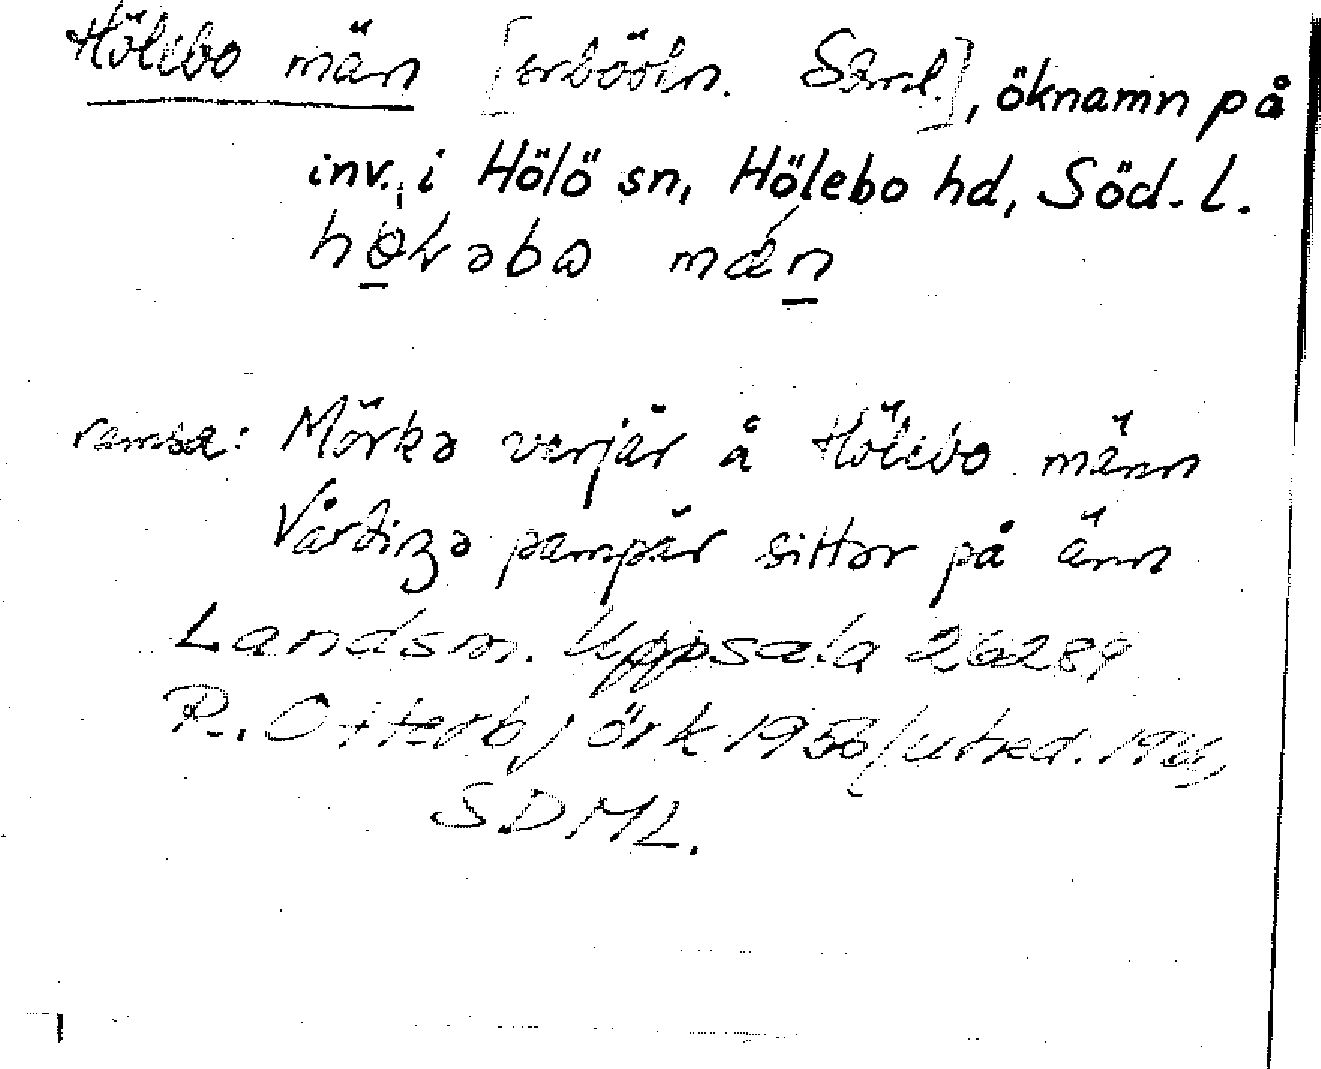 Hölebo män [orböön. Saml.], öknamn på
inv. i Hölö sn, Hölebo hd, Söd.l.
höləbo män
ramsa: Mörkə varjär å Hölebo männ
Vårdingə pampär sittər på änn
Landsm. Uppsala 26289
R. Otterbjörk 1956/utred. 
SDML.